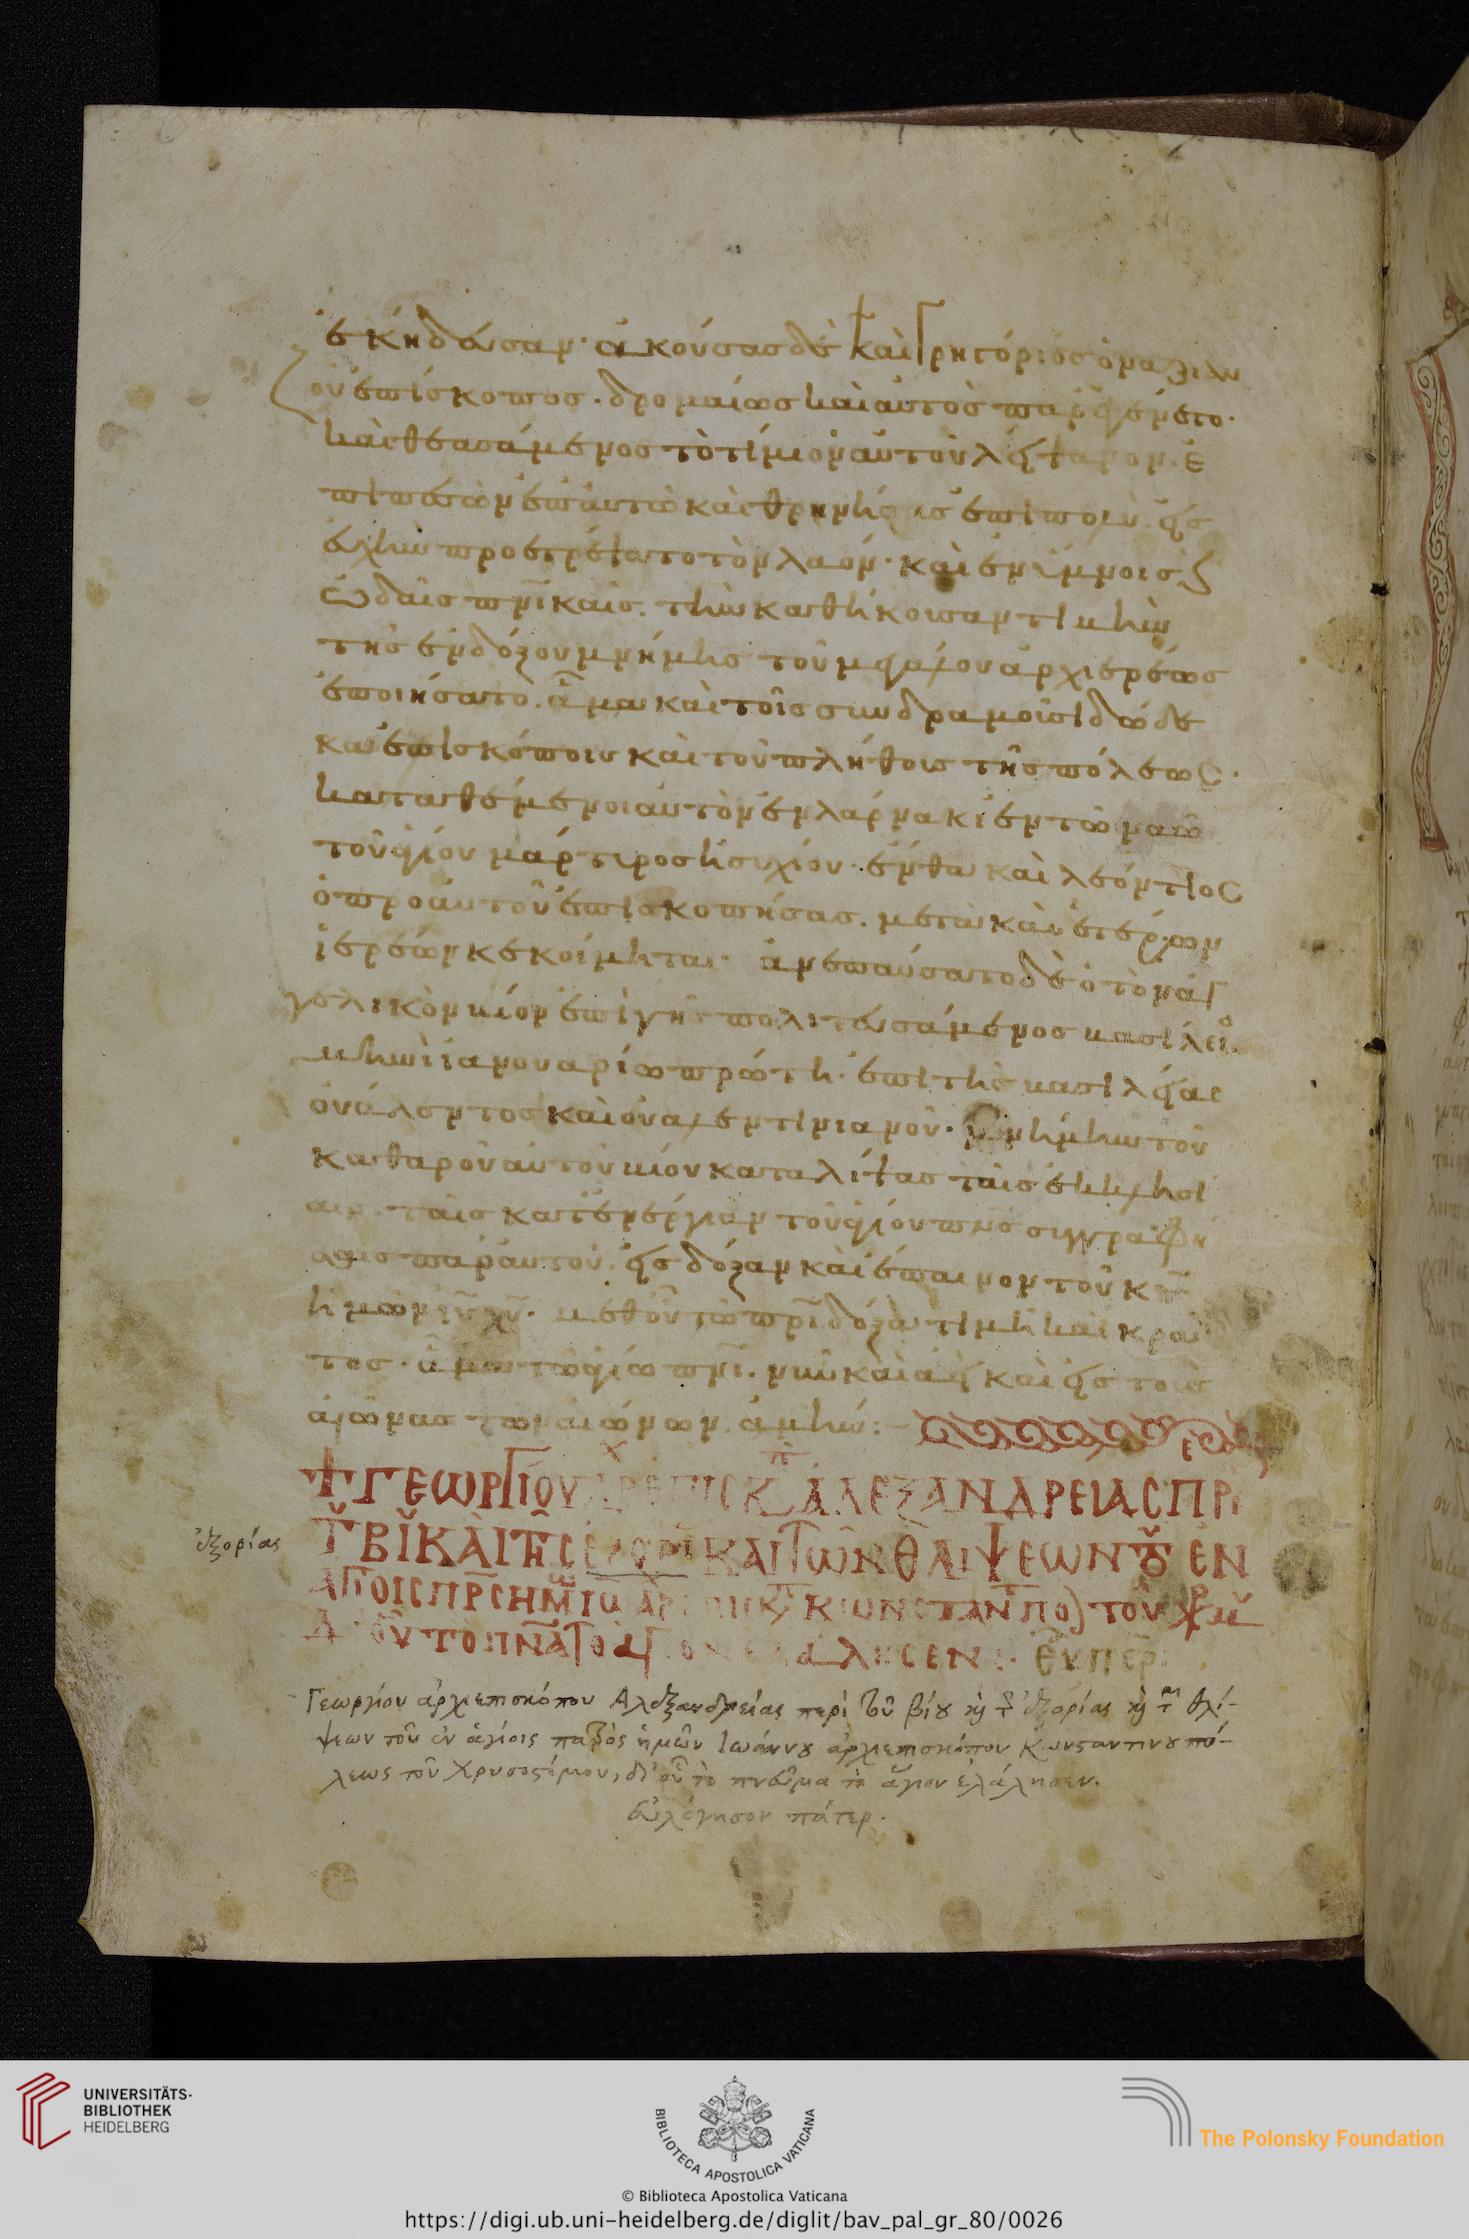 ἐκήδευσαν· ἀκούσας δὲ καὶ Γρηγόριος ὁ ναζιαν
οῦ ἐπίσκοπος· δρομαίως καὶ αὐτὸς παρεγένετο·
καὶ θεασάμενος τὸ τίμιον αὐτοῦ λείψανον· ἐ
πιπεσὼν ἐπ' αὐτὸ καὶ θρηνήσας ἐπιπολὺ εἰς
εὐχὴν προετρέψατο τὸν λαόν· καὶ ἐν ὕμνοις ϛ
ὠδαῖς πνικαῖς· τὴν καθήκουσαν τιμὴν
τῆς ἐνδόξου μνήμης τοῦ μεγάλου ἀρχιερέως
ἐποιήσατο· ἅμα καὶ τοῖς συνδραμοῦσι δώδε
κα ἐπισκόποις καὶ τοῦ πλήθους τῆς πόλεως·
καταθέμενοι αὐτὸν ἐν λάρνακι ἐν τῶ ναῶ
τοῦ ἁγίου μάρτυρος ἡσυχίου· ἔνθα καὶ λεόντιος
ὁ πρὸ αὐτοῦ ἐπισκοπήσας· μετὰ καὶ ἑτέρων
ἱερέων κεκοίμηται· ἀνεπαύσατο δὲ ὁ τὸν ἀγ
γελικὸν βίον ἐπὶ γῆς πολιτευσάμενος βασίλειο
μηνὶ ἰαννουαρίω πρώτη· ἐπὶ τῆς βασιλείας
οὐάλεντος καὶ οὐαλεντινιανοῦ· μνήμην τοῦ
καθαροῦ αὐτοῦ βίου καταλείψας ταῖς ἐκκλησί
αις· ταῖς κατ' ἐνέργιαν τοῦ ἁγίου πνς συγγραφή
σαις παρ' αὐτοῦ· εἰς δόξαν καὶ ἔπαινον τοῦ κυ
ἡμῶν ιυ χυ· μεθ' οὗ τῶ πρι δόξα τιμὴ καὶ κρά
τος· ἅμα τῶ ἁγίω πνι· νῦν καὶ ἀεὶ καὶ εἰς τοὺς
αἰῶνας τῶν αἰώνων ἀμήν:—
ΓΕΩΡΓΙΟΥ ΑΡΧΕΠΙΣΚ ΑΛΕΞΑΝΔΡΕΙΑΣ ΠΡΙ
ΤΟΥ ΒΙΟΥ ΚΑΙ ΤΗΣ ΕΞΟΡΙ ΚΑΙ ΤΩΝ ΘΛΙΨΕΩΝ ΤΟΥ ΕΝ
ἐξορίας
ΑΓΙΟΙΣ ΠΡΣ ΗΜΩΝ ΙΩ ΑΡΧΙΕΠΙΣΚ ΚΩΝΣΤΑΝΤΠΟ ΤΟΥ ΧΡΜ
ΔΙ ΟΥ ΤΟ ΠΝΑ ΤΟ ΑΓΙΟΝ ΕΛΑΛΗΣΕΝ· ΕΥ ΠΕΡ:
Γεωργίου ἀρχιεπισκόπου Ἀλεξανδρείας περὶ τοῦ βίου καὶ τῆς ἐξορίας καὶ τῶν θλί-
ψεων τοῦ ἐν ἁγίοις πατρὸς ἡμῶν Ἰωάννου ἀρχιεπισκόπου Κωνσταντινουπό-
λεως τοῦ Χρυσοστόμου, δι' οὗ τὸ πνεῦμα τὸ ἅγιον ἐλάλησεν.
εὐλόγησον πάτερ.
UNIVERSITÄTS-
BIBLIOTHEK
HEIDELBERG
BIBLIOTECA APOSTOLICA VATICANA
The Polonsky Foundation
© Biblioteca Apostolica Vaticana
https://digi.ub.uni-heidelberg.de/diglit/bav_pal_gr_80/0026